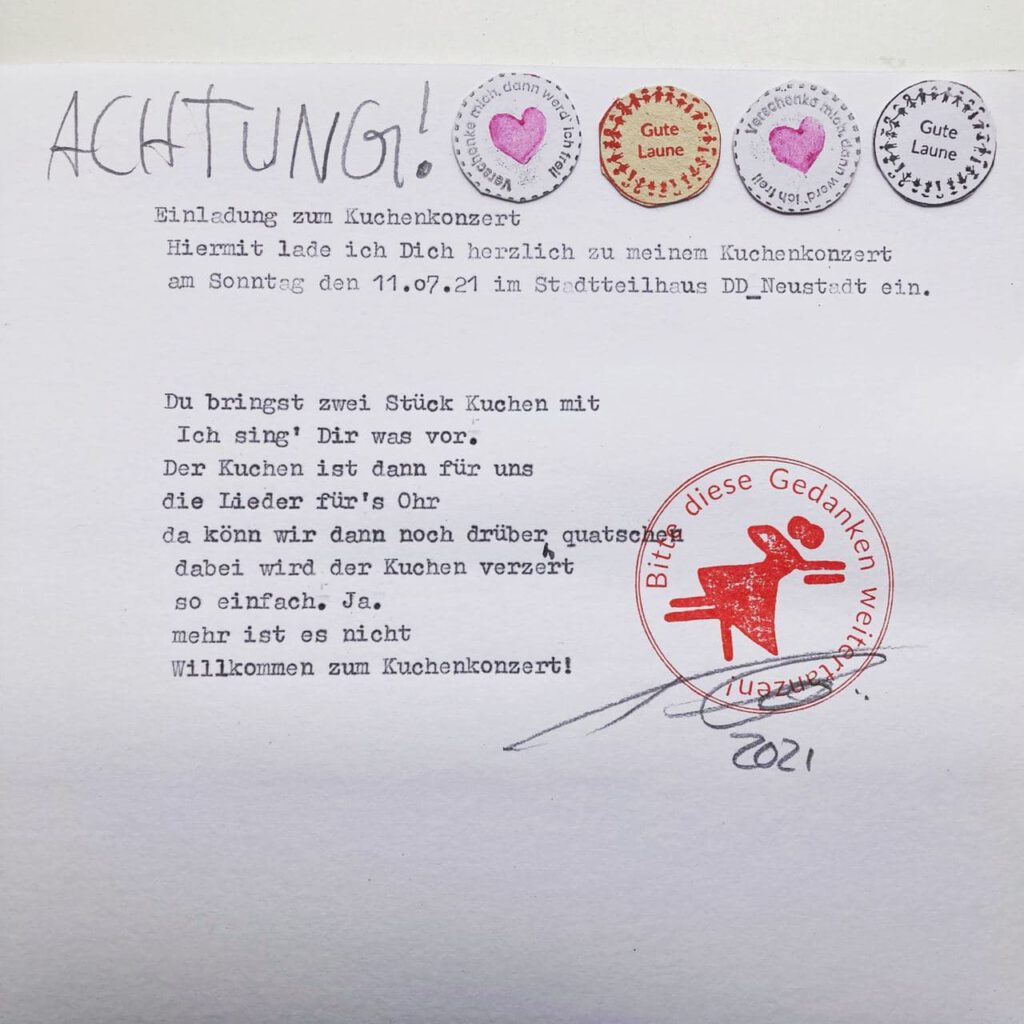 ACHTUNG!
Verschenke mich, dann werd' ich frei!
Gute
Laune
Verschenke mich, dann werd' ich frei!
Gute
Laune
Einladung zum Kuchenkonzert
Hiermit lade ich Dich herzlich zu meinem Kuchenkonzert
am Sonntag den 11.07.21 im Stadtteilhaus DD_Neustadt ein.
Du bringst zwei Stück Kuchen mit
Ich sing' Dir was vor.
Der Kuchen ist dann für uns
die Lieder für's Ohr
da könn wir dann noch drüber quatschen
dabei wird der Kuchen verzehrt
so einfach. Ja.
mehr ist es nicht
Willkommen zum Kuchenkonzert!
Bitte diese Gedanken weitertanzen!
2021